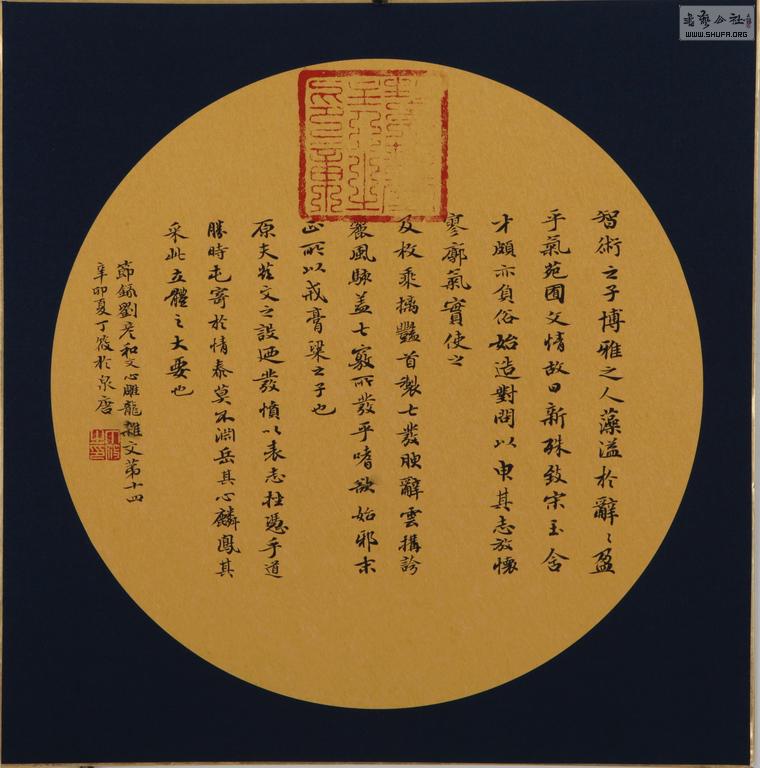 智術之子博雅之人藻溢於辭辭盈
乎氣苑囿文情故日新殊致宋玉含
才頗亦負俗始造對問以申其志放懷
寥廓氣實使之
及枚乘摛豔首製七發腴辭雲搆誇
麗風駭蓋七竅所發乎嗜欲始邪末
正所以戒膏粱之子也
原夫茲文之設迺發憤以表志身挫憑乎道
勝時屯寄於情泰莫不淵岳其心麟鳳其
采此立體之大要也
節錄劉彥和文心雕龍雜文第十四
辛卯夏丁筱於泉唐
WWW.SHUFA.ORG